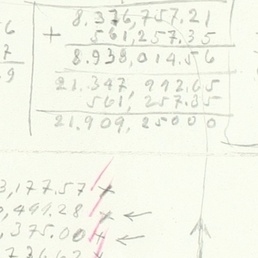 8.376,757.21
+ 561,257.35
8.938,014.56
21.347,992.65
561,257.35
21.909,25000
6
7
.9
3,177.57 x
,491.28 x ←
,375.00 x ←